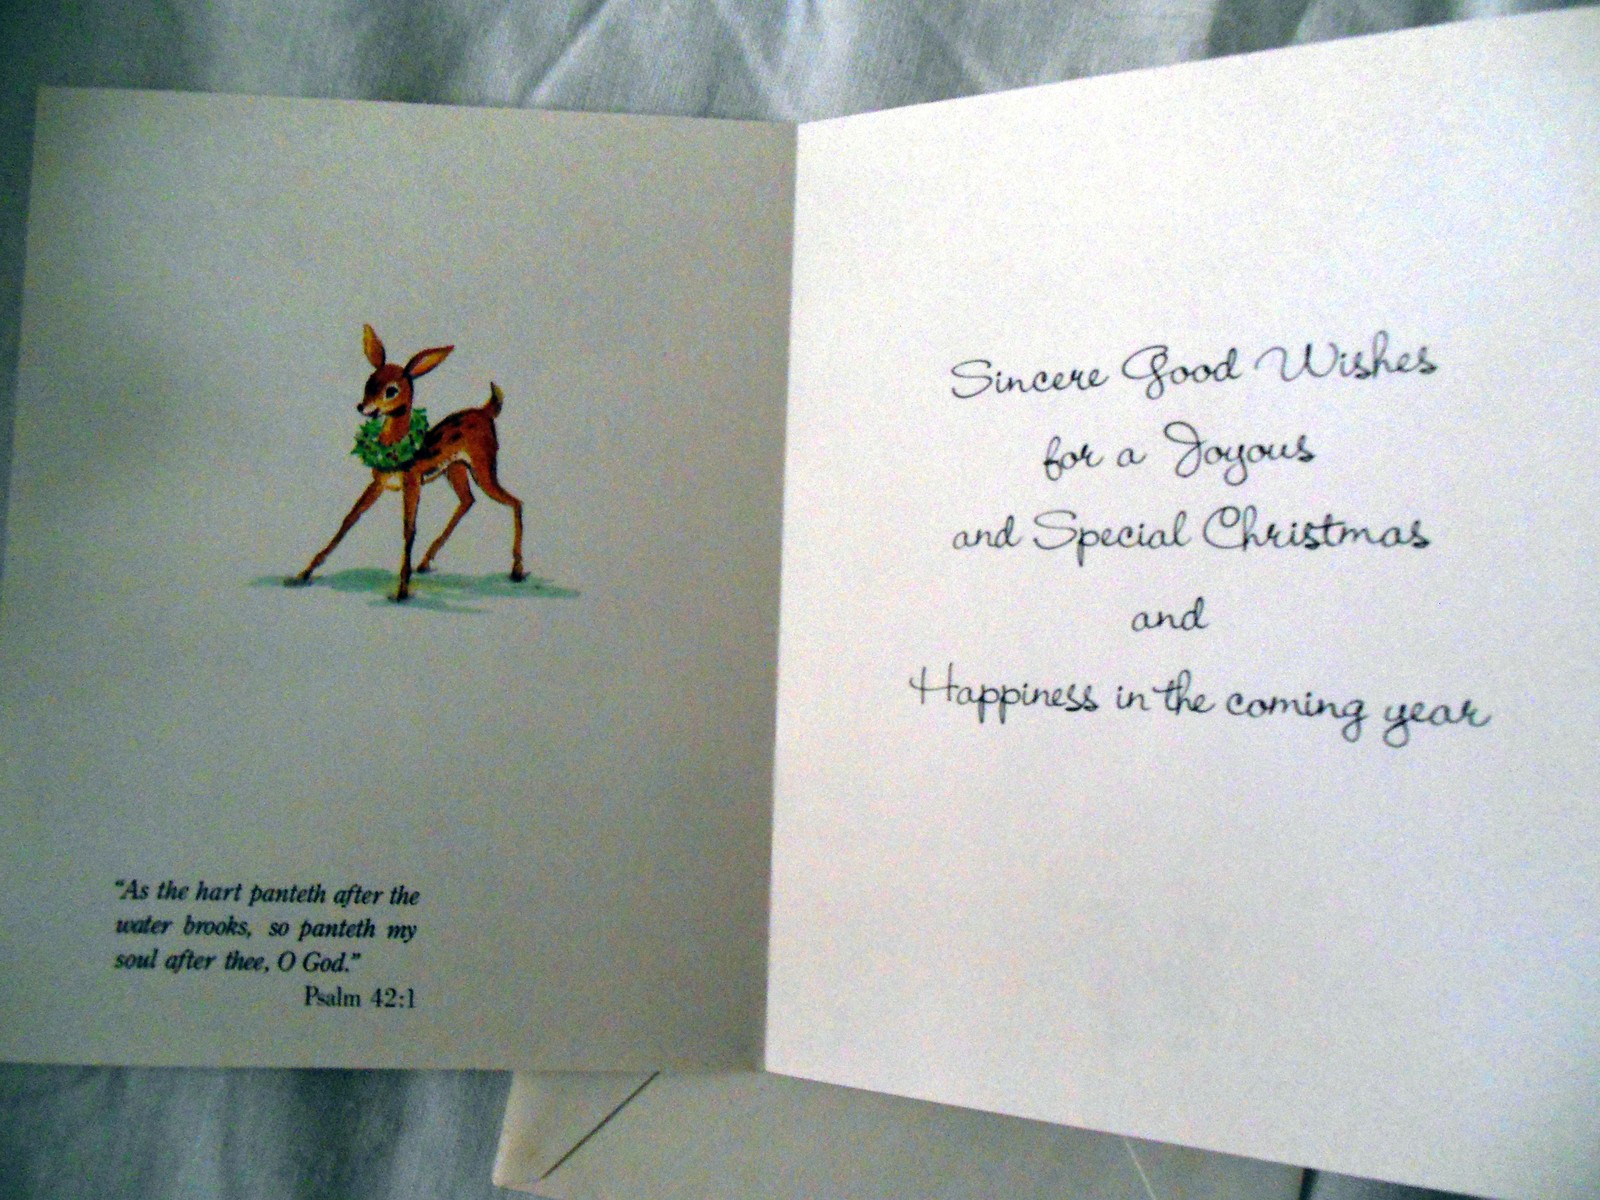 "As the hart panteth after the
water brooks, so panteth my
soul after thee, O God."
Psalm 42:1
Sincere Good Wishes
for a Joyous
and Special Christmas
and
Happiness in the coming year